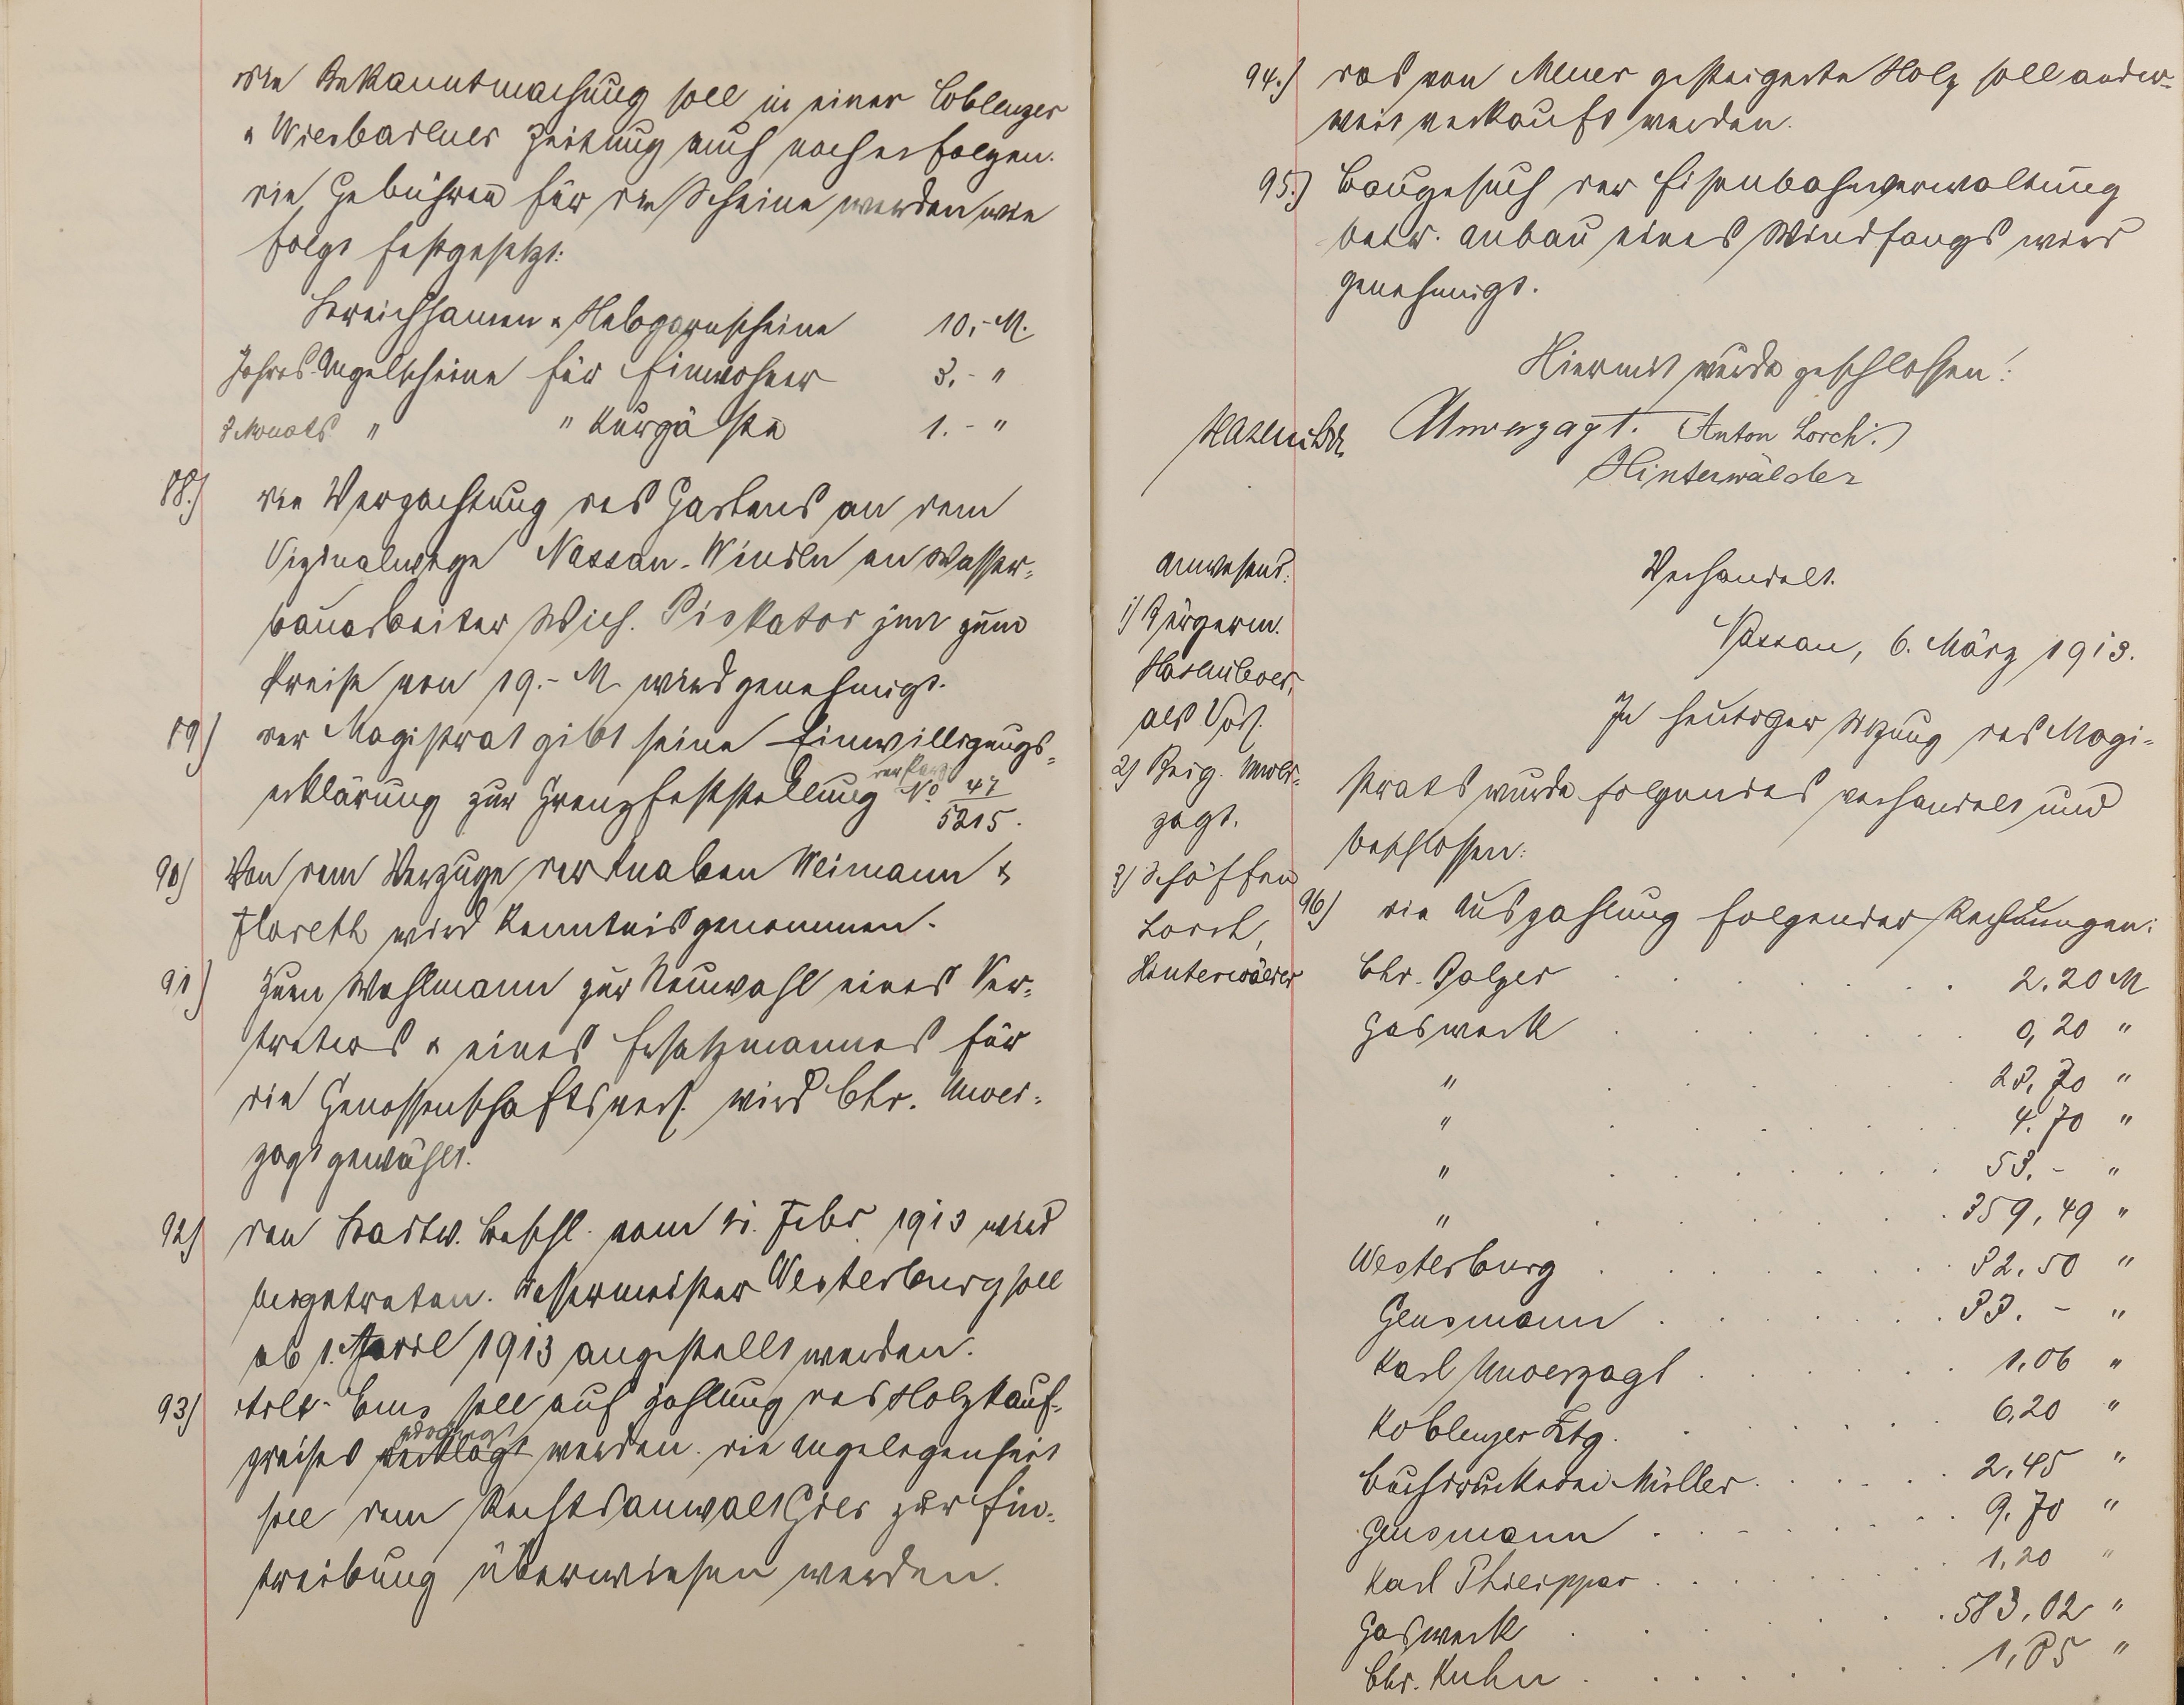 Die Bekanntmachung soll in einer Coblenzer
u Wiesbadener Zeitung auch noch erfolgen.
Die Gebühren für die Scheine werden wie
folgt festgesetzt:
Streichhamen u Hebegarnscheine 10,- M.
Jahres-Angelscheine für Einwohner 3.- "
3 Monats " " Kurgäste 1.- "
88.) Die Verpachtung des Gartens an dem
Vizinalwege Nassau-Winden an Wasser-
bauarbeiter Wilh. Piskator jun zum
Preise von 19.- M. wird genehmigt.
89) Der Magistrat gibt seine Einwilligungs-
erklärung zur Grenzfeststellung der Parz No. 47/5215.
90) Von dem Verzuge der Knaben Weimann &
Floreth wird Kenntnis genommen.
91) Zum Wahlmann zur Neuwahl eines Ver-
treters u eines Ersatzmannes für
die Genossenschaftsvers. wird Chr. Unver-
zagt gewählt.
92) Den Stadtv. Beschl. vom 21. Febr. 1913 wird
beigetreten. Wassermeister Westerburg soll
ab 1. April 1913 angestellt werden.
93) Ems soll auf Zahlung des Holzkauf-
preises verklagt werden. Die Angelegenheit
soll dem Rechtsanwalt zur Ein-
treibung überwiesen werden.
94.) Das von Meuer gesteigerte Holz soll ander-
weit verkauft werden.
95.) Baugesuch der Eisenbahnverwaltung
betr. Anbau eines Windfangs wird
genehmigt.
Hiermit wurde geschlossen:
Hasenclever Unverzagt. Anton Lorch.
Hinterwälder
Anwesend:
1) Bürgerm.
Hasenclever,
als Vors.
2) Beig. Unver-
zagt.
3) Schöffen
Lorch,
Hinterwälder
Verhandelt.
Nassau, 6. März 1913.
In heutiger Sitzung des Magi-
strats wurde folgendes verhandelt und
beschlossen:
96) Die Auszahlung folgender Rechnungen:
Chr. Balzer 2.20 M
Gaswerk 0,20 "
" 23,70 "
" 4.70 "
" 53.- "
" 359,49 "
Westerburg 32.50 "
Gensmann 33.- "
Karl Unverzagt 1.06 "
Koblenzer Ztg. 6,20 "
Buchdruckerei Müller 2.45 "
Gensmann 9.70 "
Karl Philippar 1,20 "
Gaswerk 583,02 "
Chr. Kuhn 1,85 "